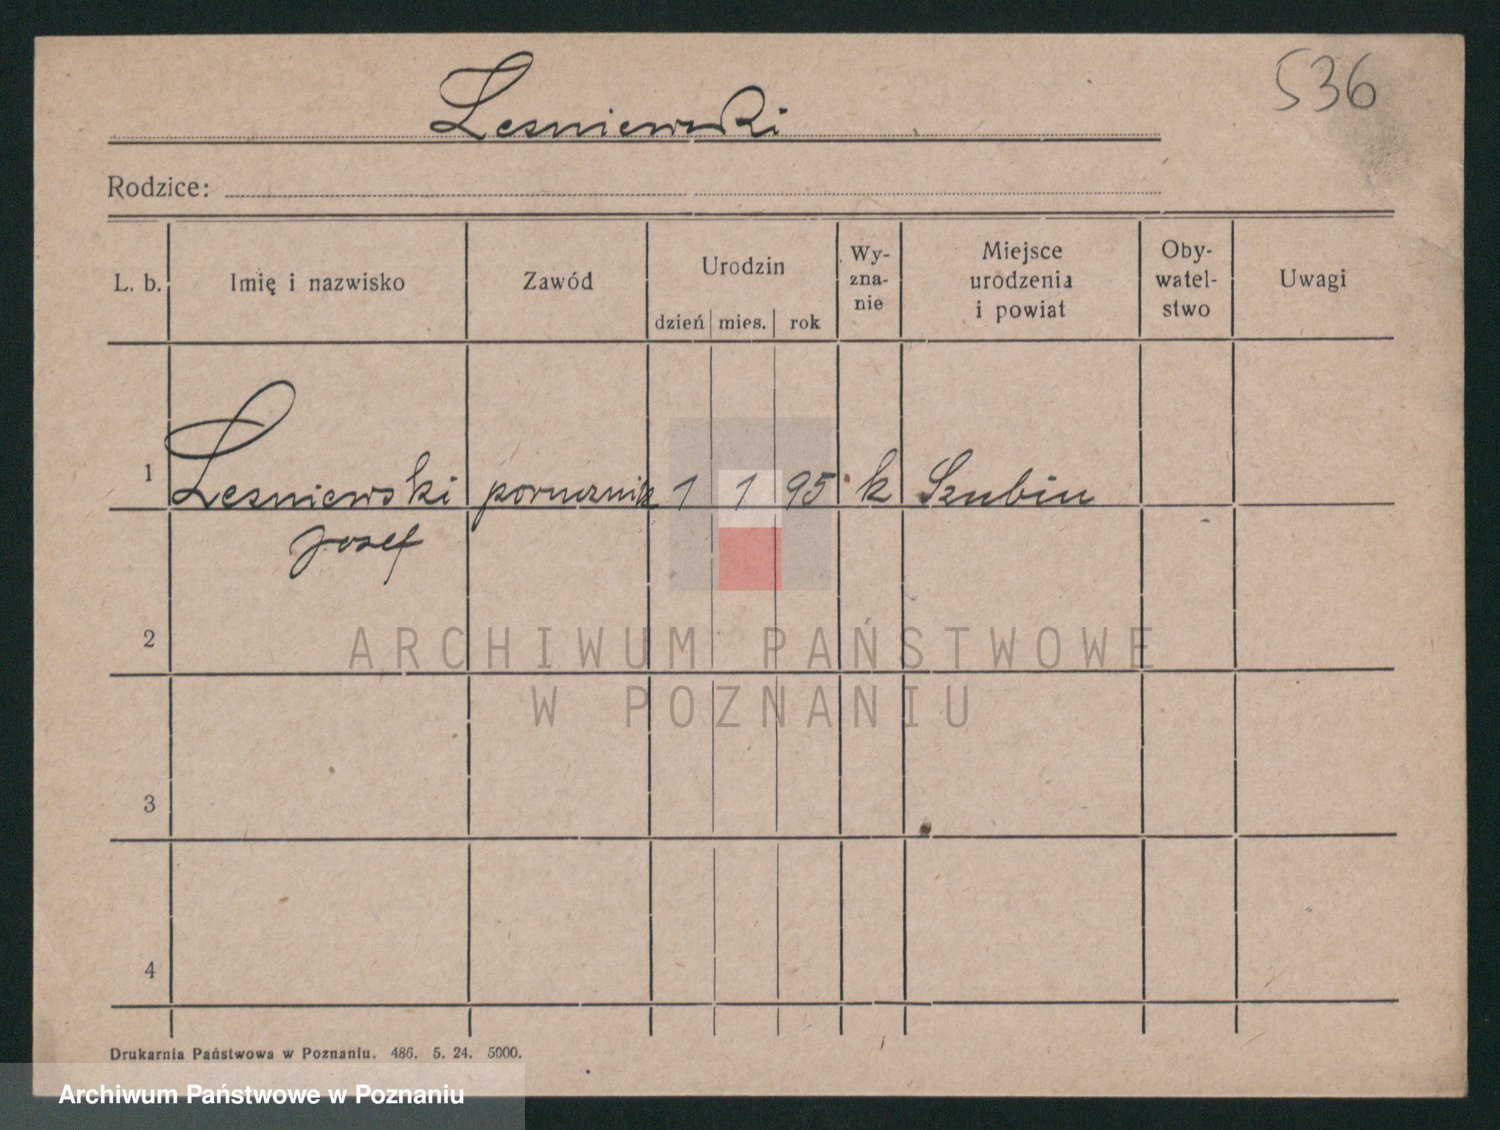 536
Lesniewski
Rodzice:
L. b. Imię i nazwisko Zawód Urodzin dzień mies. rok Wy-zna-nie Miejsce urodzenia i powiat Oby-watel-stwo Uwagi
1 Lesniewski porucznik 1 1 95 k Szubin
Josef
2
ARCHIWUM PAŃSTWOWE
W POZNANIU
3
4
Drukarnia Państwowa w Poznaniu. 486. 5. 24. 5000.
Archiwum Państwowe w Poznaniu